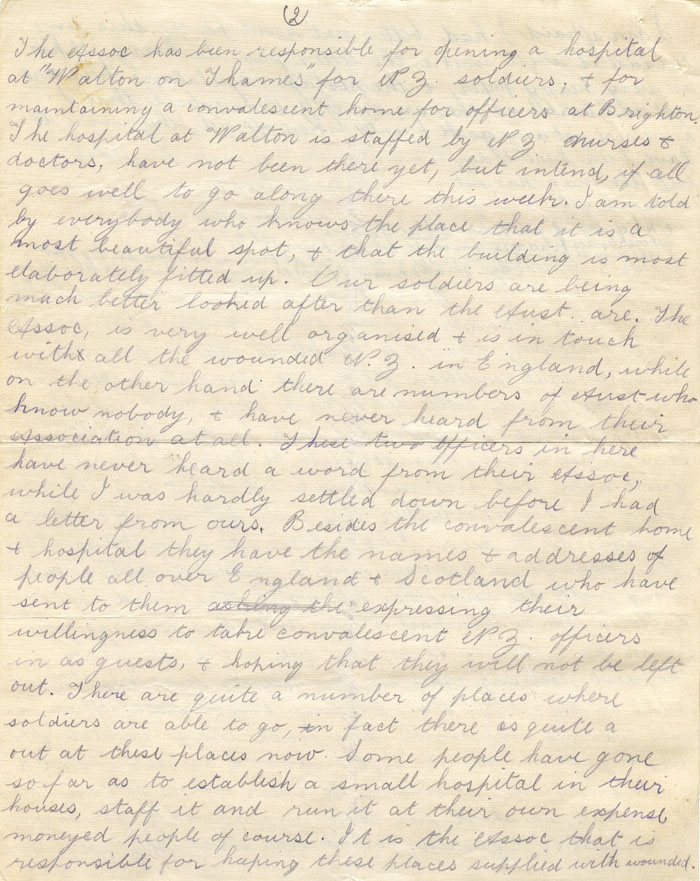 2
The Assoc has been responsible for opening a hospital
at "Walton on Thames" for N.Z. soldiers, & for
maintaining a convalescent home for officers at Brighton.
The hospital at Walton is staffed by N Z nurses &
doctors, have not been there yet, but intend, if all
goes well to go along there this week. I am told
by everybody who knows the place that it is a
most beautiful spot, & that the building is most
elaborately fitted up. Our soldiers are being
much better looked after than the Aust. are. The
Assoc, is very well organised & is in touch
with all the wounded N.Z. in England, while
on the other hand there are numbers of Aust who
know nobody, & have never heard from their
Association at all. These two officers in here
have never heard a word from their Assoc,
while I was hardly settled down before I had
a letter from ours. Besides the convalescent home
& hospital they have the names & addresses of
people all over England & Scotland who have
sent to them asking the expressing their
willingness to take convalescent N Z. officers
in as guests, & hoping that they will not be left
out. There are quite a number of places where
soldiers are able to go, in fact there is quite a
out at these places now. Some people have gone
so far as to establish a small hospital in their
houses, staff it and run it at their own expense
moneyed people of course. It is the Assoc that is
responsible for keeping these places supplied with wounded.